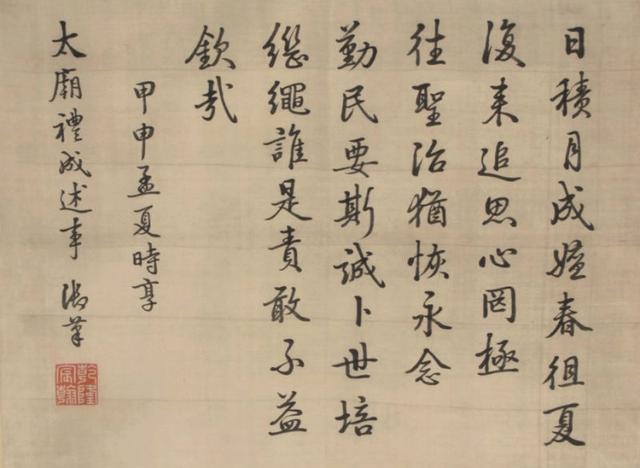 日積月成嬗春徂夏
復来追思心罔極
往聖治猶恢永念
勤民要斯誠卜世培
繼繩誰是責敢不益
欽哉
甲申孟夏時享
太廟禮成述事 御筆
乾隆宸翰